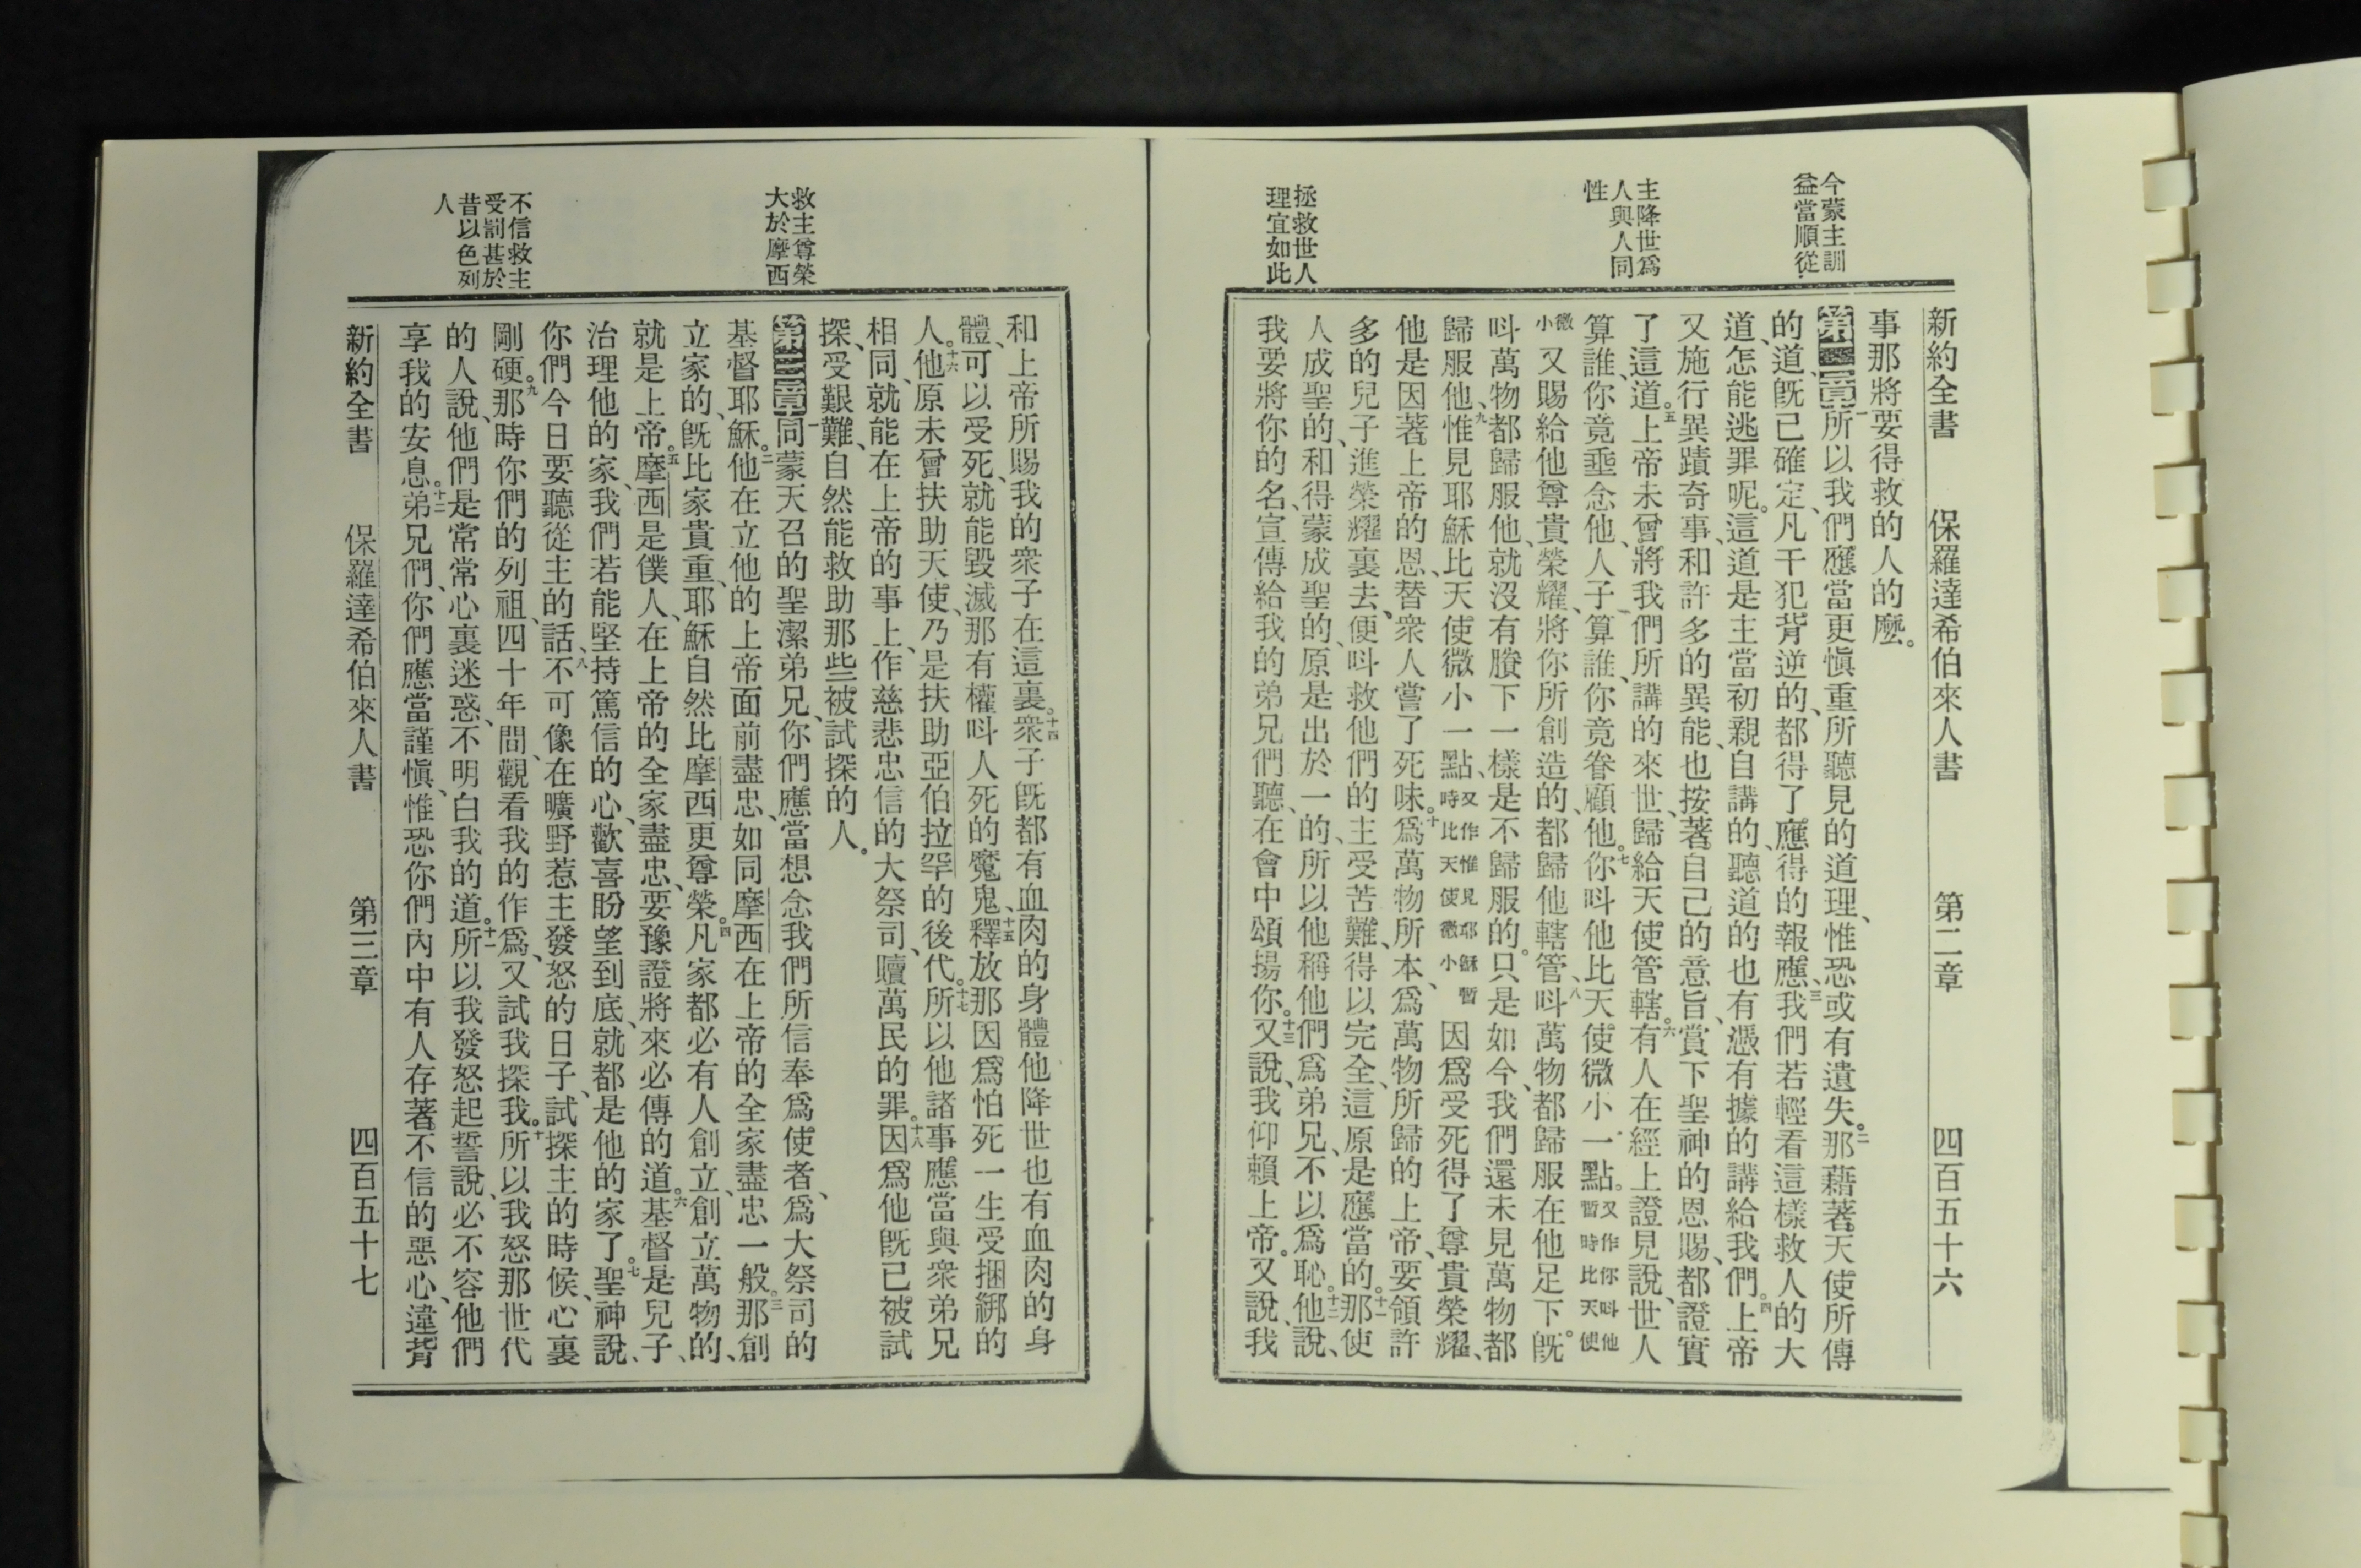 今蒙主訓
益當順從
主降世爲
人與人同
性
拯救世人
理宜如此
新約全書 保羅達希伯來人書 第二章 四百五十六
事那將要得救的人的麼。
第二章一所以我們應當更愼重所聽見的道理、惟恐或有遺失。二那藉著天使所傳
的道、旣已確定、凡干犯背逆的、都得了應得的報應、三我們若輕看這樣救人的大
道、怎能逃罪呢。這道是主當初親自講的、聽道的也有憑有據的講給我們。四上帝
又施行異蹟奇事、和許多的異能、也按著自己的意旨、賞下聖神的恩賜、都證實
了這道。五上帝未曾將我們所講的來世、歸給天使管轄。六有人在經上證見說、世人
算誰、你竟垂念他、人子算誰、你竟眷顧他。七你呌他比天使微小一點。又作你呌他暫時比天使
微小又賜給他尊貴榮耀、將你所創造的、都歸他轄管、八呌萬物、都歸服在他足下。旣
呌萬物都歸服他、就沒有賸下一樣是不歸服的。只是如今、我們還未見萬物都
歸服他、九惟見耶穌比天使微小一點、又作惟見耶穌暫時比天使微小因爲受死得了尊貴榮耀、
他是因著上帝的恩、替衆人嘗了死味。十爲萬物所本、爲萬物所歸的上帝、要領許
多的兒子進榮耀裏去、便呌救他們的主受苦難、得以完全、這原是應當的。十一那使
人成聖的、和得蒙成聖的、原是出於一的、所以他稱他們爲弟兄、不以爲恥。十二他說、
我要將你的名、宣傳給我的弟兄們聽、在會中頌揚你。十三又說、我仰賴上帝。又說、我
救主尊榮
大於摩西
不信救主
受罰甚於
昔以色列
人
和上帝所賜、我的衆子在這裏。十四衆子旣都有血肉的身體他降世也有血肉的身
體、可以受死、就能毀滅那有權呌人死的魔鬼、十五釋放那因爲怕死一生受捆綁的
人。十六他原未曾扶助天使、乃是扶助亞伯拉罕的後代。十七所以他諸事應當與衆弟兄
相同、就能在上帝的事上、作慈悲忠信的大祭司、贖萬民的罪。十八因爲他旣已被試
探、受艱難、自然能救助那些被試探的人。
第三章一同蒙天召的聖潔弟兄、你們應當想念我們所信奉爲使者、爲大祭司的
基督耶穌。二他在立他的上帝面前盡忠、如同摩西在上帝的全家盡忠一般。三那創
立家的、旣比家貴重、耶穌自然比摩西更尊榮。四凡家都必有人創立、創立萬物的、
就是上帝。五摩西是僕人、在上帝的全家盡忠、要豫證將來必傳的道。六基督是兒子、
治理他的家、我們若能堅持篤信的心、歡喜盼望到底、就都是他的家了。七聖神說、
你們今日要聽從主的話、八不可像在曠野惹主發怒的日子、試探主的時候、心裏
剛硬。九那時你們的列祖、四十年間、觀看我的作爲、又試我探我。十所以我怒那世代
的人說、他們是常常心裏迷惑、不明白我的道。十一所以我發怒起誓說、必不容他們
享我的安息。十二弟兄們、你們應當謹愼、惟恐你們內中有人存著不信的惡心、違背
新約全書 保羅達希伯來人書 第三章 四百五十七